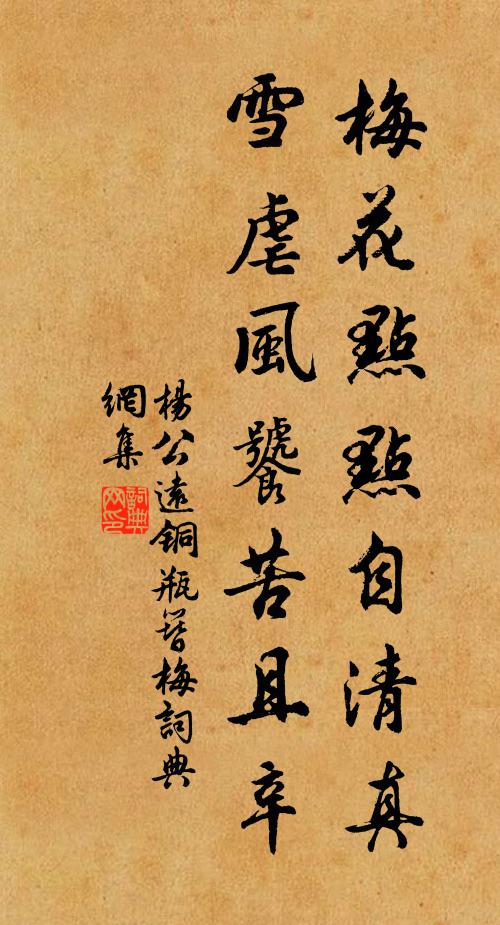 梅花點點自清真
雪虐風饕苦且辛
楊公遠銅瓶簪梅詞典
網集
詞典
网印